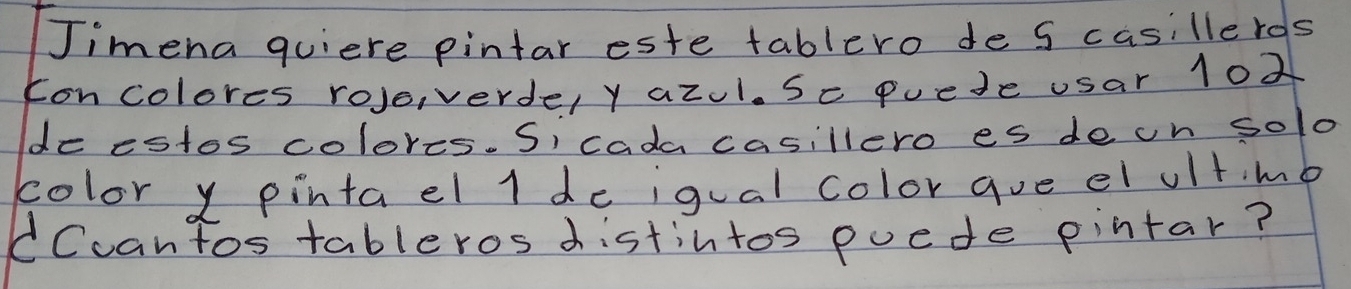 Jimena quiere pintar este tablero de 5 casilleros
con colores rojo, verde, y azul. Se puede usar 1 o 2
de estos colores. Si cada casillero es de un solo
color y pinta el 1 de igual color que el ultimo
¿Cuantos tableros distintos puede pintar?